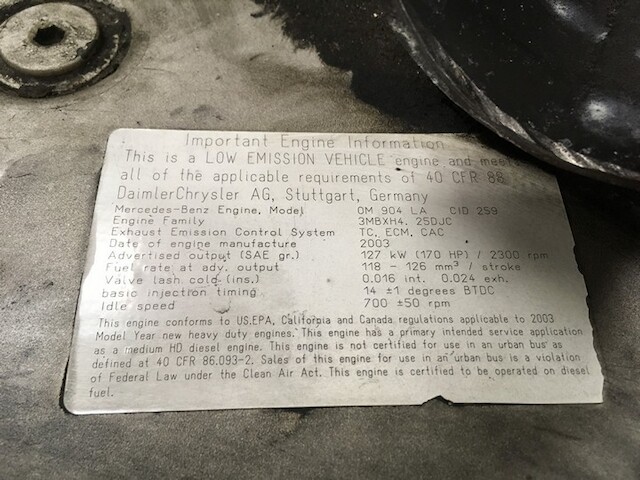 Important Engine Information
This is a LOW EMISSION VEHICLE engine and meets
all of the applicable requirements of 40 CFR 88
DaimlerChrysler AG, Stuttgart, Germany
Mercedes-Benz Engine, Model OM 904 LA CID 259
Engine Family 3MBXH4.25DJC
Exhaust Emission Control System TC, ECM, CAC
Date of engine manufacture 2003
Advertised output (SAE gr.) 127 kW (170 HP) / 2300 rpm
Fuel rate at adv. output 118 - 126 mm³ / stroke
Valve lash cold (ins.) 0.016 int. 0.024 exh.
basic injection timing 14 ±1 degrees BTDC
Idle speed 700 ±50 rpm
This engine conforms to US.EPA, California and Canada regulations applicable to 2003
Model Year new heavy duty engines. This engine has a primary intended service application
as a medium HD diesel engine. This engine is not certified for use in an urban bus as
defined at 40 CFR 86.093-2. Sales of this engine for use in an urban bus is a violation
of Federal Law under the Clean Air Act. This engine is certified to be operated on diesel
fuel.